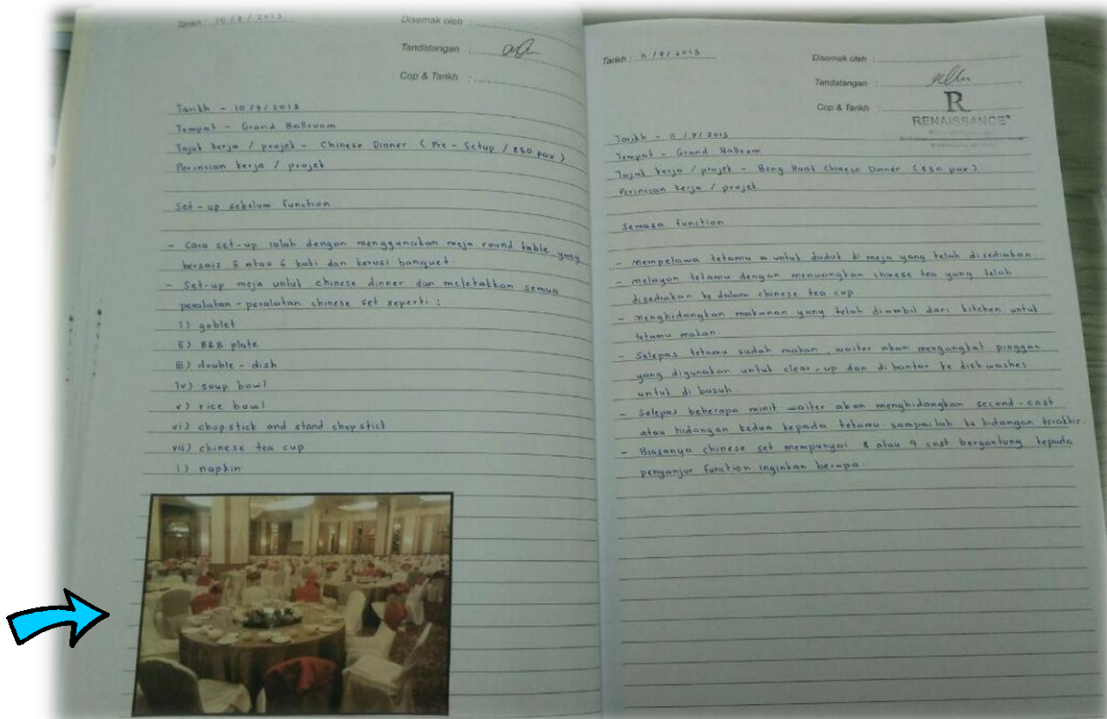 Tarikh : 10 / 9 / 2013
Disemak oleh :
Tandatangan :
Cop & Tarikh :
Tarikh - 10 / 9 / 2013
Tempat - Grand Ballroom
Tajuk kerja / projek - Chinese Dinner ( Pre - Setup / 850 pax )
Perincian kerja / projek
Set - up sebelum function
- Cara set-up ialah dengan menggunakan meja round table yang
bersaiz 5 atau 6 kaki dan kerusi banquet.
- Set-up meja untuk chinese dinner dan meletakkan semua
peralatan - peralatan chinese set seperti :
i) goblet
ii) B&B plate
iii) double - dish
iv) soup bowl
v) rice bowl
vi) chop stick and stand chop stick
vii) chinese tea cup
i) napkin
Tarikh : 11 / 9 / 2013
Disemak oleh :
Tandatangan :
Cop & Tarikh :
R
RENAISSANCE
Tarikh - 11 / 9 / 2013
Tempat - Grand Ballroom
Tajuk kerja / projek - Beng Huat Chinese Dinner (850 pax)
Perincian kerja / projek
Semasa function
- Mempelawa tetamu untuk duduk di meja yang telah disediakan.
- melayan tetamu dengan menuangkan chinese tea yang telah
disediakan ke dalam chinese tea cup.
- menghidangkan makanan yang telah diambil dari kitchen untuk
tetamu makan.
- Selepas tetamu sudah makan , waiter akan mengangkat pinggan
yang digunakan untuk clear - up dan di hantar ke dish washes
untuk di basuh.
- Selepas beberapa minit waiter akan menghidangkan second - cost
atau hidangan kedua kepada tetamu sampailah ke hidangan terakhir.
- Biasanya chinese set mempunyai 8 atau 9 cost bergantung kepada
penganjur function inginkan berapa.